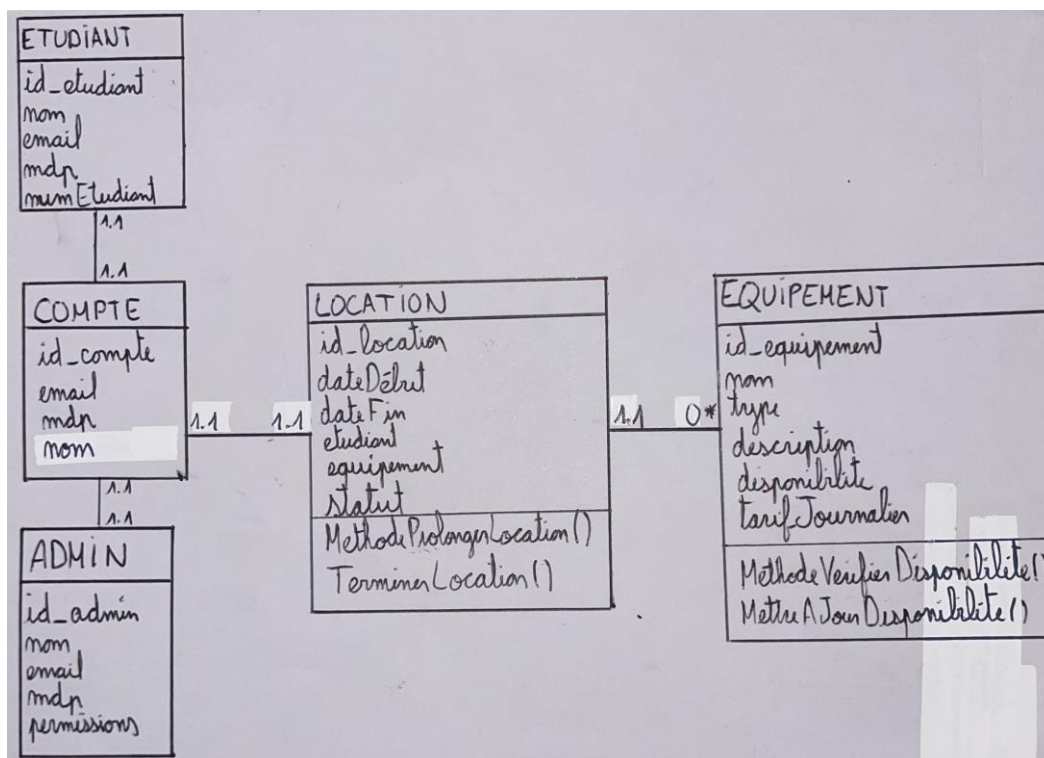 ETUDIANT
id_etudiant
nom
email
mdp
numEtudiant
1.1
1.1
COMPTE
id_compte
email
mdp
nom
1.1
1.1
1.1
1.1
ADMIN
id_admin
nom
email
mdp
permissions
LOCATION
id_location
dateDébut
dateFin
etudiant
equipement
statut
MethodeProlongerLocation()
TerminerLocation()
1.1
0*
EQUIPEMENT
id_equipement
nom
type
description
disponibilite
tarifJournalier
MethodeVerifierDisponibilite()
MettreAJourDisponibilite()